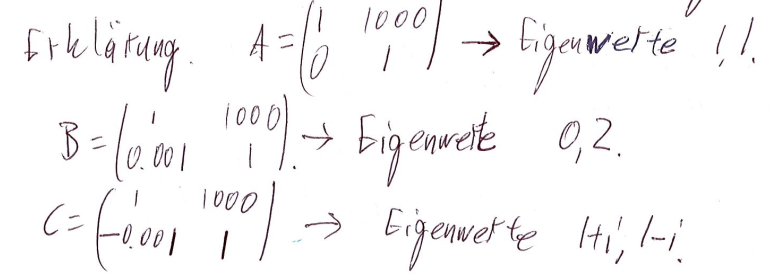 Erklärung. A = (1 1000; 0 1) → Eigenwerte 1,1.
B = (1 1000; 0.001 1). → Eigenwerte 0,2.
C = (1 1000; -0.001 1) → Eigenwerte 1+i, 1-i.